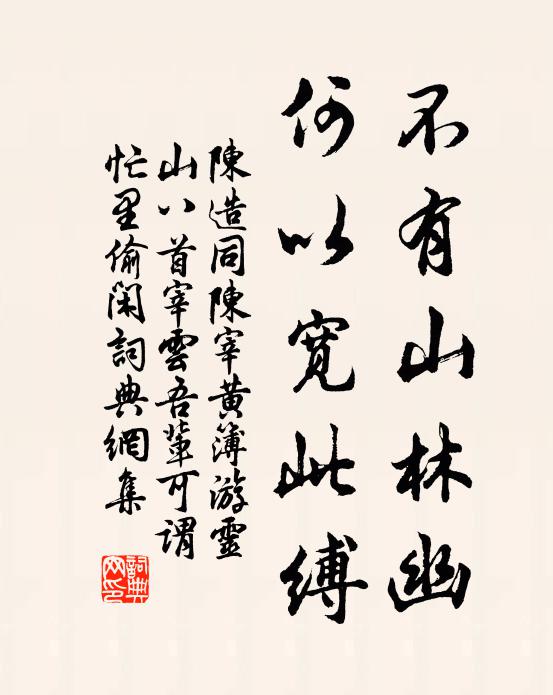 不有山林幽
何以寬此縛
陳造同陳宰黃簿游靈
山八首宰雲吾輩可謂
忙里偷閑詞典網集
詞典网印